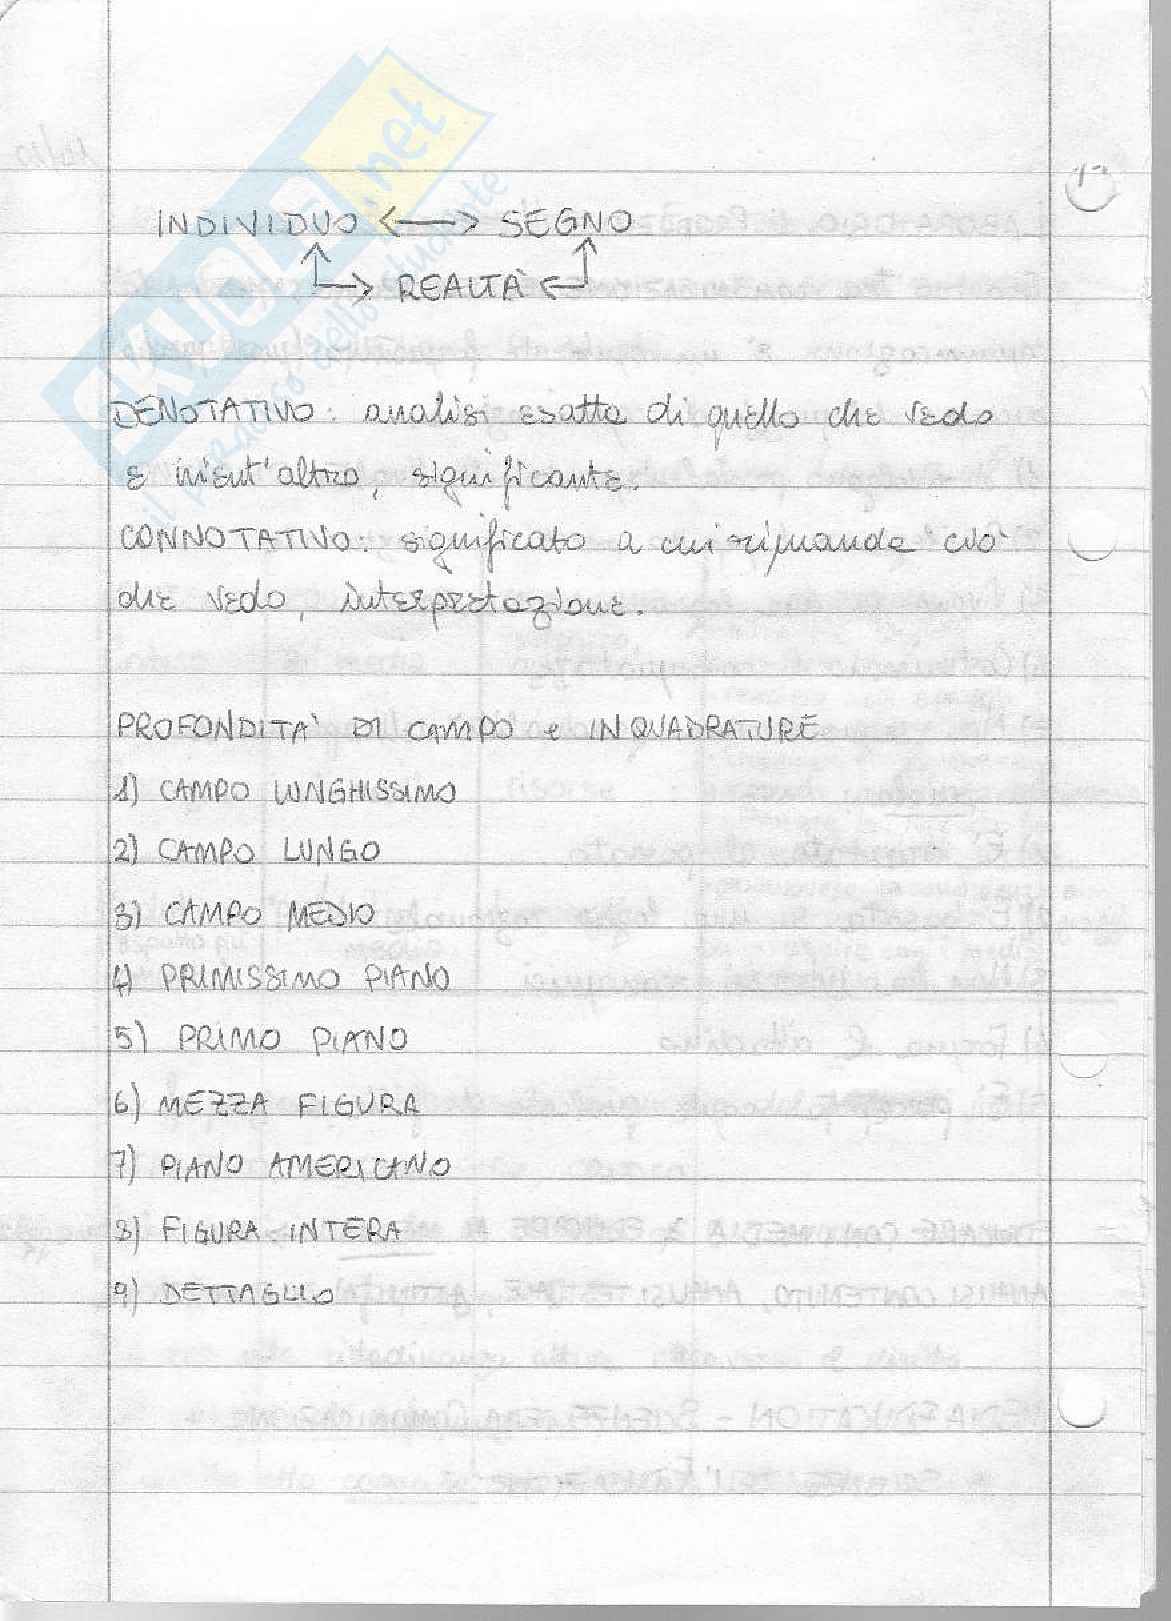 SKUOLA.net
il portico dello studente
INDIVIDUO <—> SEGNO
REALTÀ
DENOTATIVO: analisi esatta di quello che vedo
e nient'altro, significante.
CONNOTATIVO: significato a cui rimanda ciò
che vedo, interpretazione.
PROFONDITA' DI CAMPO e INQUADRATURE
1) CAMPO LUNGHISSIMO
2) CAMPO LUNGO
3) CAMPO MEDIO
4) PRIMISSIMO PIANO
5) PRIMO PIANO
6) MEZZA FIGURA
7) PIANO AMERICANO
8) FIGURA INTERA
9) DETTAGLIO